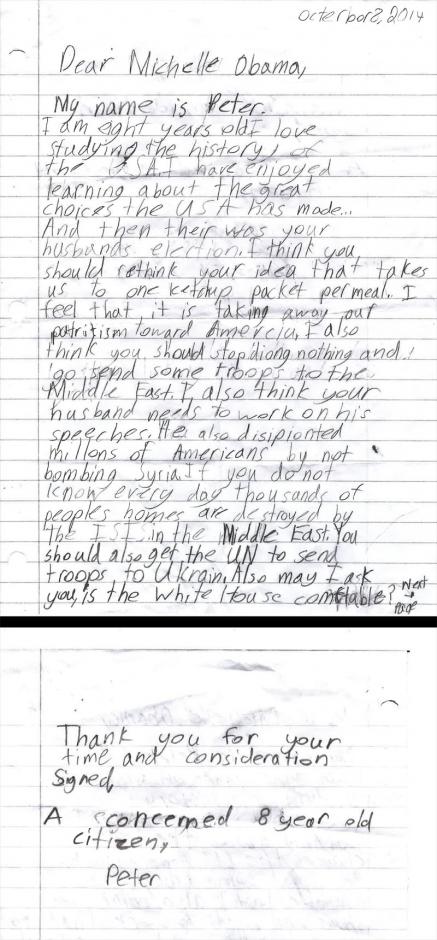 Octerbor 2, 2014
Dear Michelle Obama,
My name is Peter.
I am eight years old I love
studying the history, of
the USA. I have enjoyed
learning about the great
choices the USA has made...
And then their was your
husbands election. I think you
should rethink your idea that takes
us to one ketchup packet per meal. I
feel that, it is taking away our
patritism toward Amercia, I also
think you should stop diong nothing and
go send some troops to the
Middle East. I also think your
husband needs to work on his
speeches. He also disipionted
millons of Americans by not
bombing Syria. If you do not
know every day thousands of
peoples homes are destroyed by
the ISI. in the Middle East. You
should also get the UN to send
troops to Ukrain. Also may I ask
you, is the White House comftable? Next
→
Page
Thank you for your
time and consideration
Signed,
A concerned 8 year old
citizen,
Peter